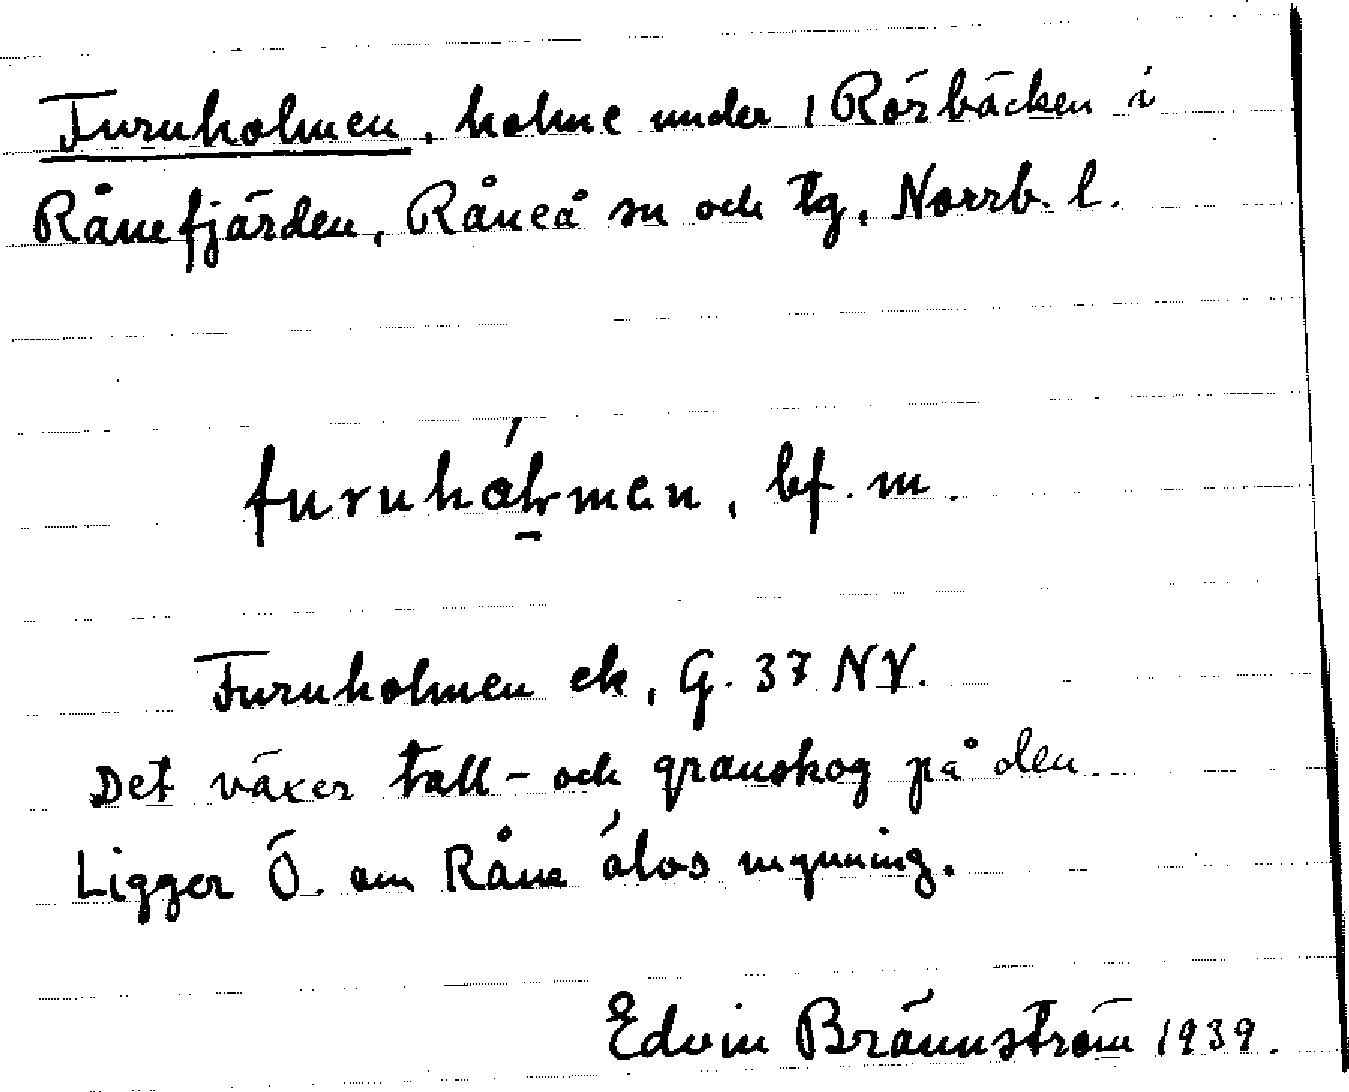 Furuholmen, holme under 1 Rörbäcken i
Rånefjärden, Råneå sn och tg, Norrb. l.
furuhólmen, bf. m.
Furuholmen ek, G. 37 NV.
Det växer tall- och granskog på den
Ligger Ö. om Råne älvs mynning.
Edvin Brännström 1939.